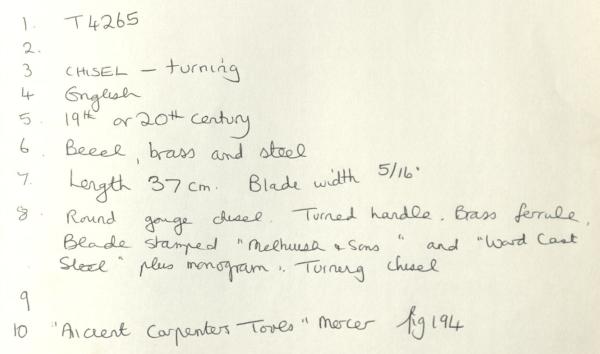 1. T4265
2.
3 CHISEL – turning
4 English
5. 19th or 20th century
6. Beeel, brass and steel
7. Length 37cm. Blade width 5/16"
8. Round gouge chisel. Turned handle. Brass ferrule.
Blade stamped "Melhuish & Sons" and "Ward Cast
Steel" plus monogram. Turning chisel
9
10 "Ancient Carpenters Tools" Mercer fig 194